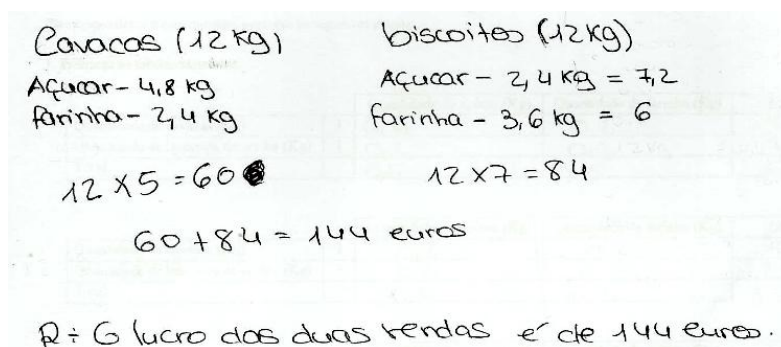 Cavacas (12 kg)
Açucar - 4,8 kg
farinha - 2,4 kg
12 x 5 = 60
biscoitos (12kg)
Açucar - 2,4 kg = 7,2
farinha - 3,6 kg = 6
12 x 7 = 84
60 + 84 = 144 euros
R: O lucro das duas vendas é de 144 euros.